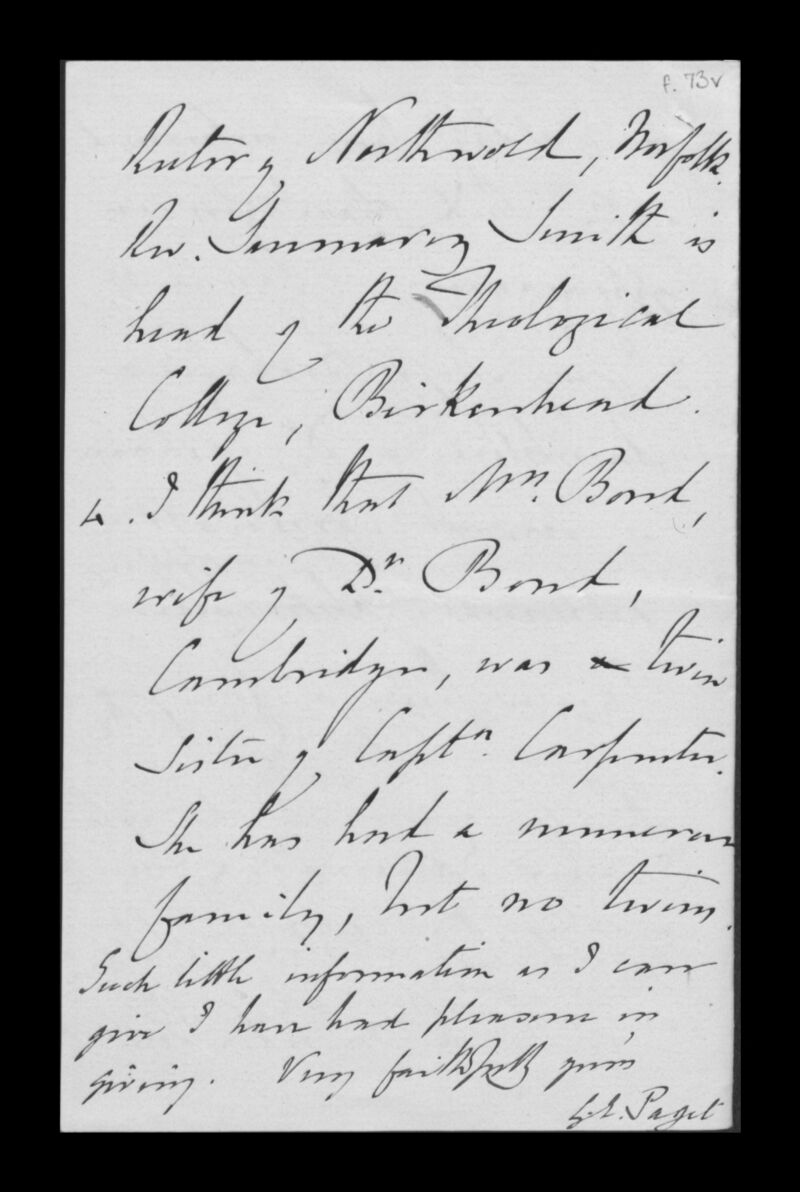 f. 73v
Rector of Northwold, Norfolk.
Rev. Saumarez Smith is
head of the Theological
College, Birkenhead.
4. I think that Mrs. Bond,
wife of Dr. Bond,
Cambridge, was a twin
sister of Captn. Carpenter.
She has had a numerous
family, but no twins.
Such little information as I can
give I have had pleasure in
giving. Very faithfully yours
G.E. Paget